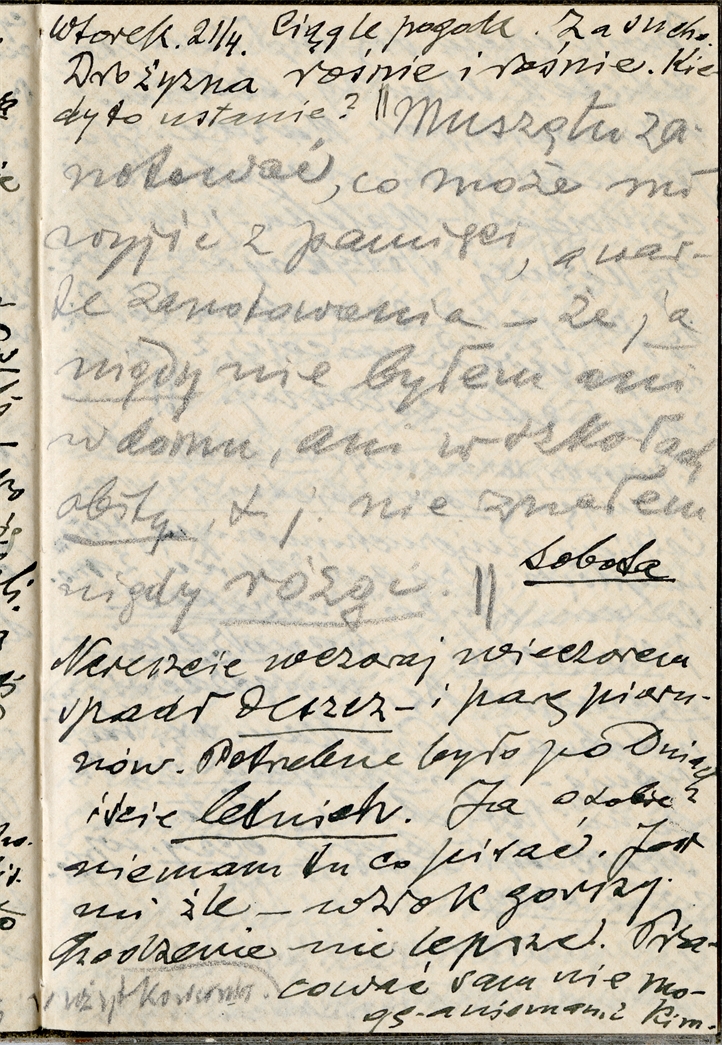 Wtorek. 21/4. Ciągle pogoda. Za sucho.
Drożyzna rośnie i rośnie. Kie-
dy to ustanie? || Muszę tu za-
notować, co może mi
wyjść z pamięci, a war-
te zanotowania – że ja
nigdy nie byłem ani
w domu, ani w szkołach
bity, t. j. nie znałem
nigdy rózgi. ||
Sobota
Nareszcie wczoraj wieczorem
spadł deszcz – i parę pioru-
nów. Potrzebne było po Dniach
iście letnich. Ja o sobie
niemam tu co pisać. Jest
mi źle – wzrok gorszy.
Chodzenie nie lepsze. Pra-
cować sam nie mo-
gę – a niemam z kim.